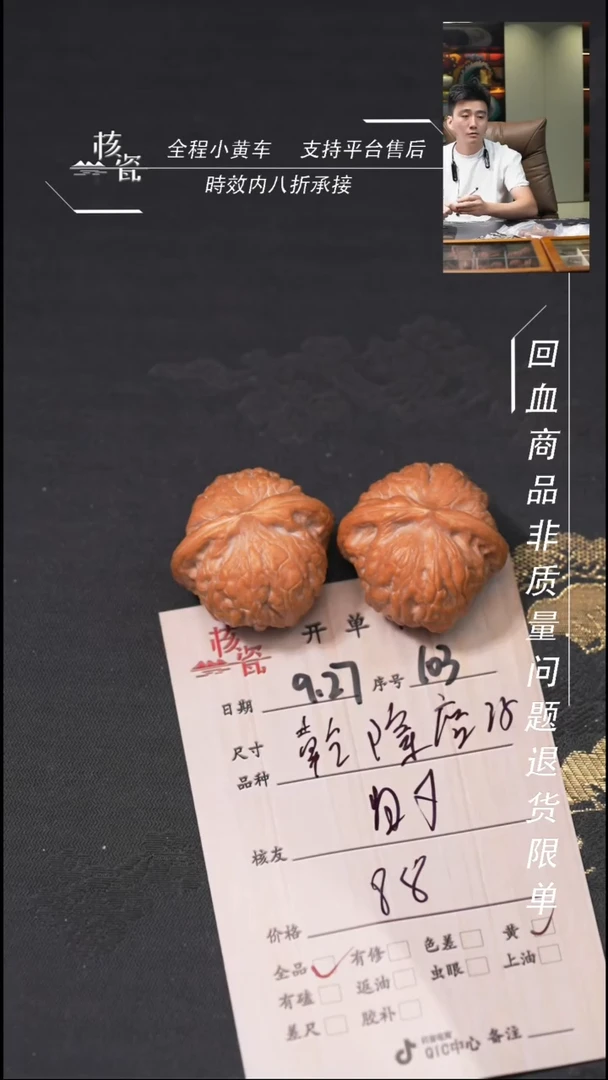 核瓷
全程小黄车 支持平台售后
時效内八折承接
回血商品非质量问题退货限单
核瓷
开单
日期 9.27 序号 103
尺寸
品种 乾隆
核友
88
价格
全品 有修 色差 黄
有磕 返油 虫眼 上油
差尺 胶补
抖音电商
QIC中心 备注